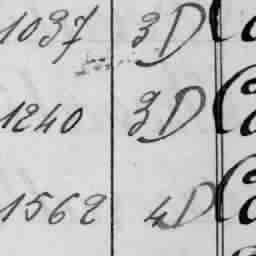 1037 3D
1240 3D
1562 4D